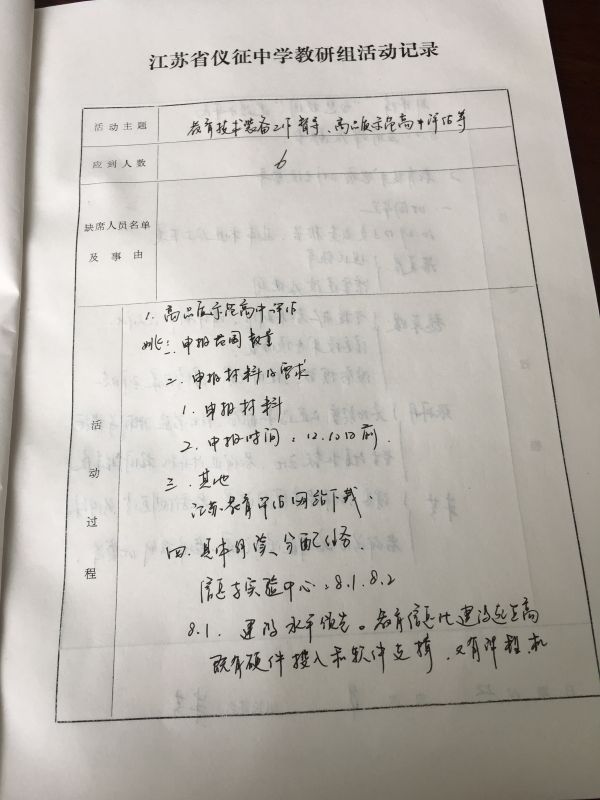 江苏省仪征中学教研组活动记录
活动主题
教育技术装备工作督导、高品质示范高中评估等
应到人数
6
缺席人员名单
及事由
活动过程
1. 高品质示范高中评估
一、申报范围数量
二、申报材料及要求
1. 申报材料
2. 申报时间：12.10日前.
三、其他
江苏教育评估网站下载.
四、具体内涵、分配任务.
信息与实验中心：8.1. 8.2
8.1. 建设水平领先。教育信息化建设起点高
既有硬件投入和软件支持，又有课程、机